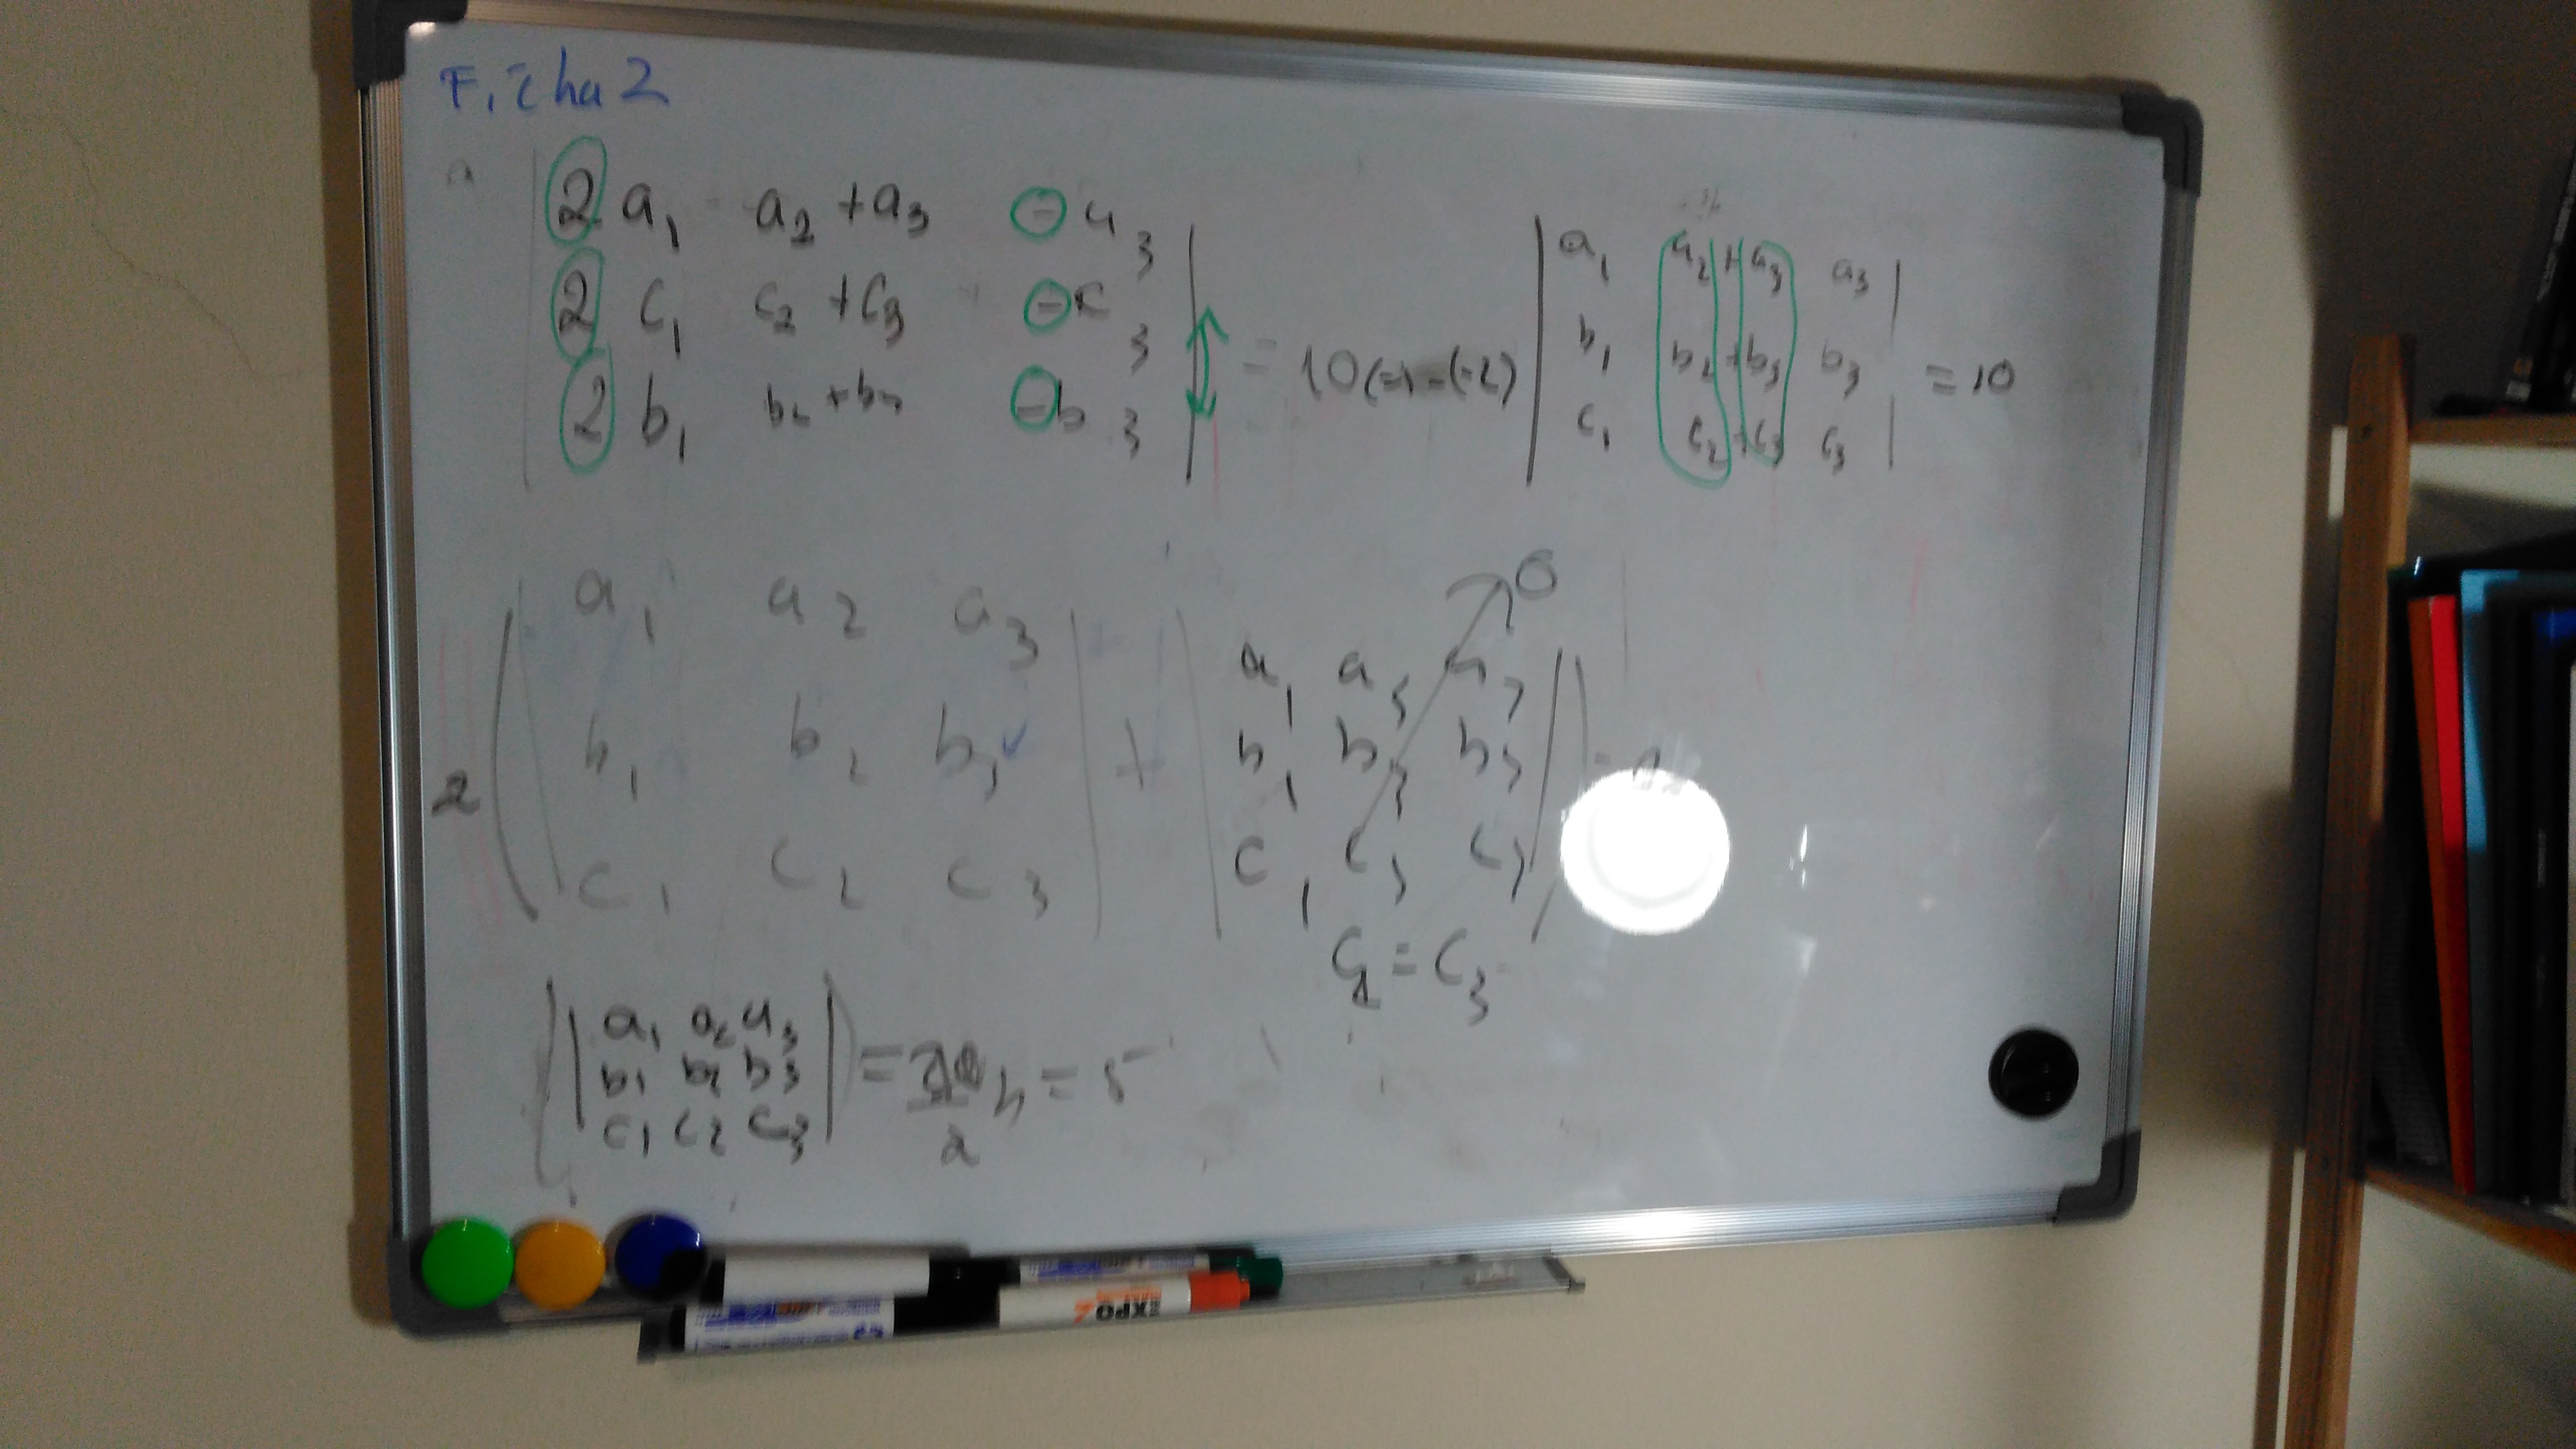 Ficha 2
2 a1 a2 + a3 - a3
2 c1 c2 + c3 - c3
2 b1 b2 + b3 - b3
= 10
a1 a2 + a3 a3
b1 b2 + b3 b3
c1 c2 + c3 c3
= 10
2
a1 a2 a3
b1 b2 b3
c1 c2 c3
+
a1 a3 a3
b1 b3 b3
c1 c3 c3
0
C2 = C3
a1 a2 a3
b1 b2 b3
c1 c2 c3
=
2
= 5
EXPO